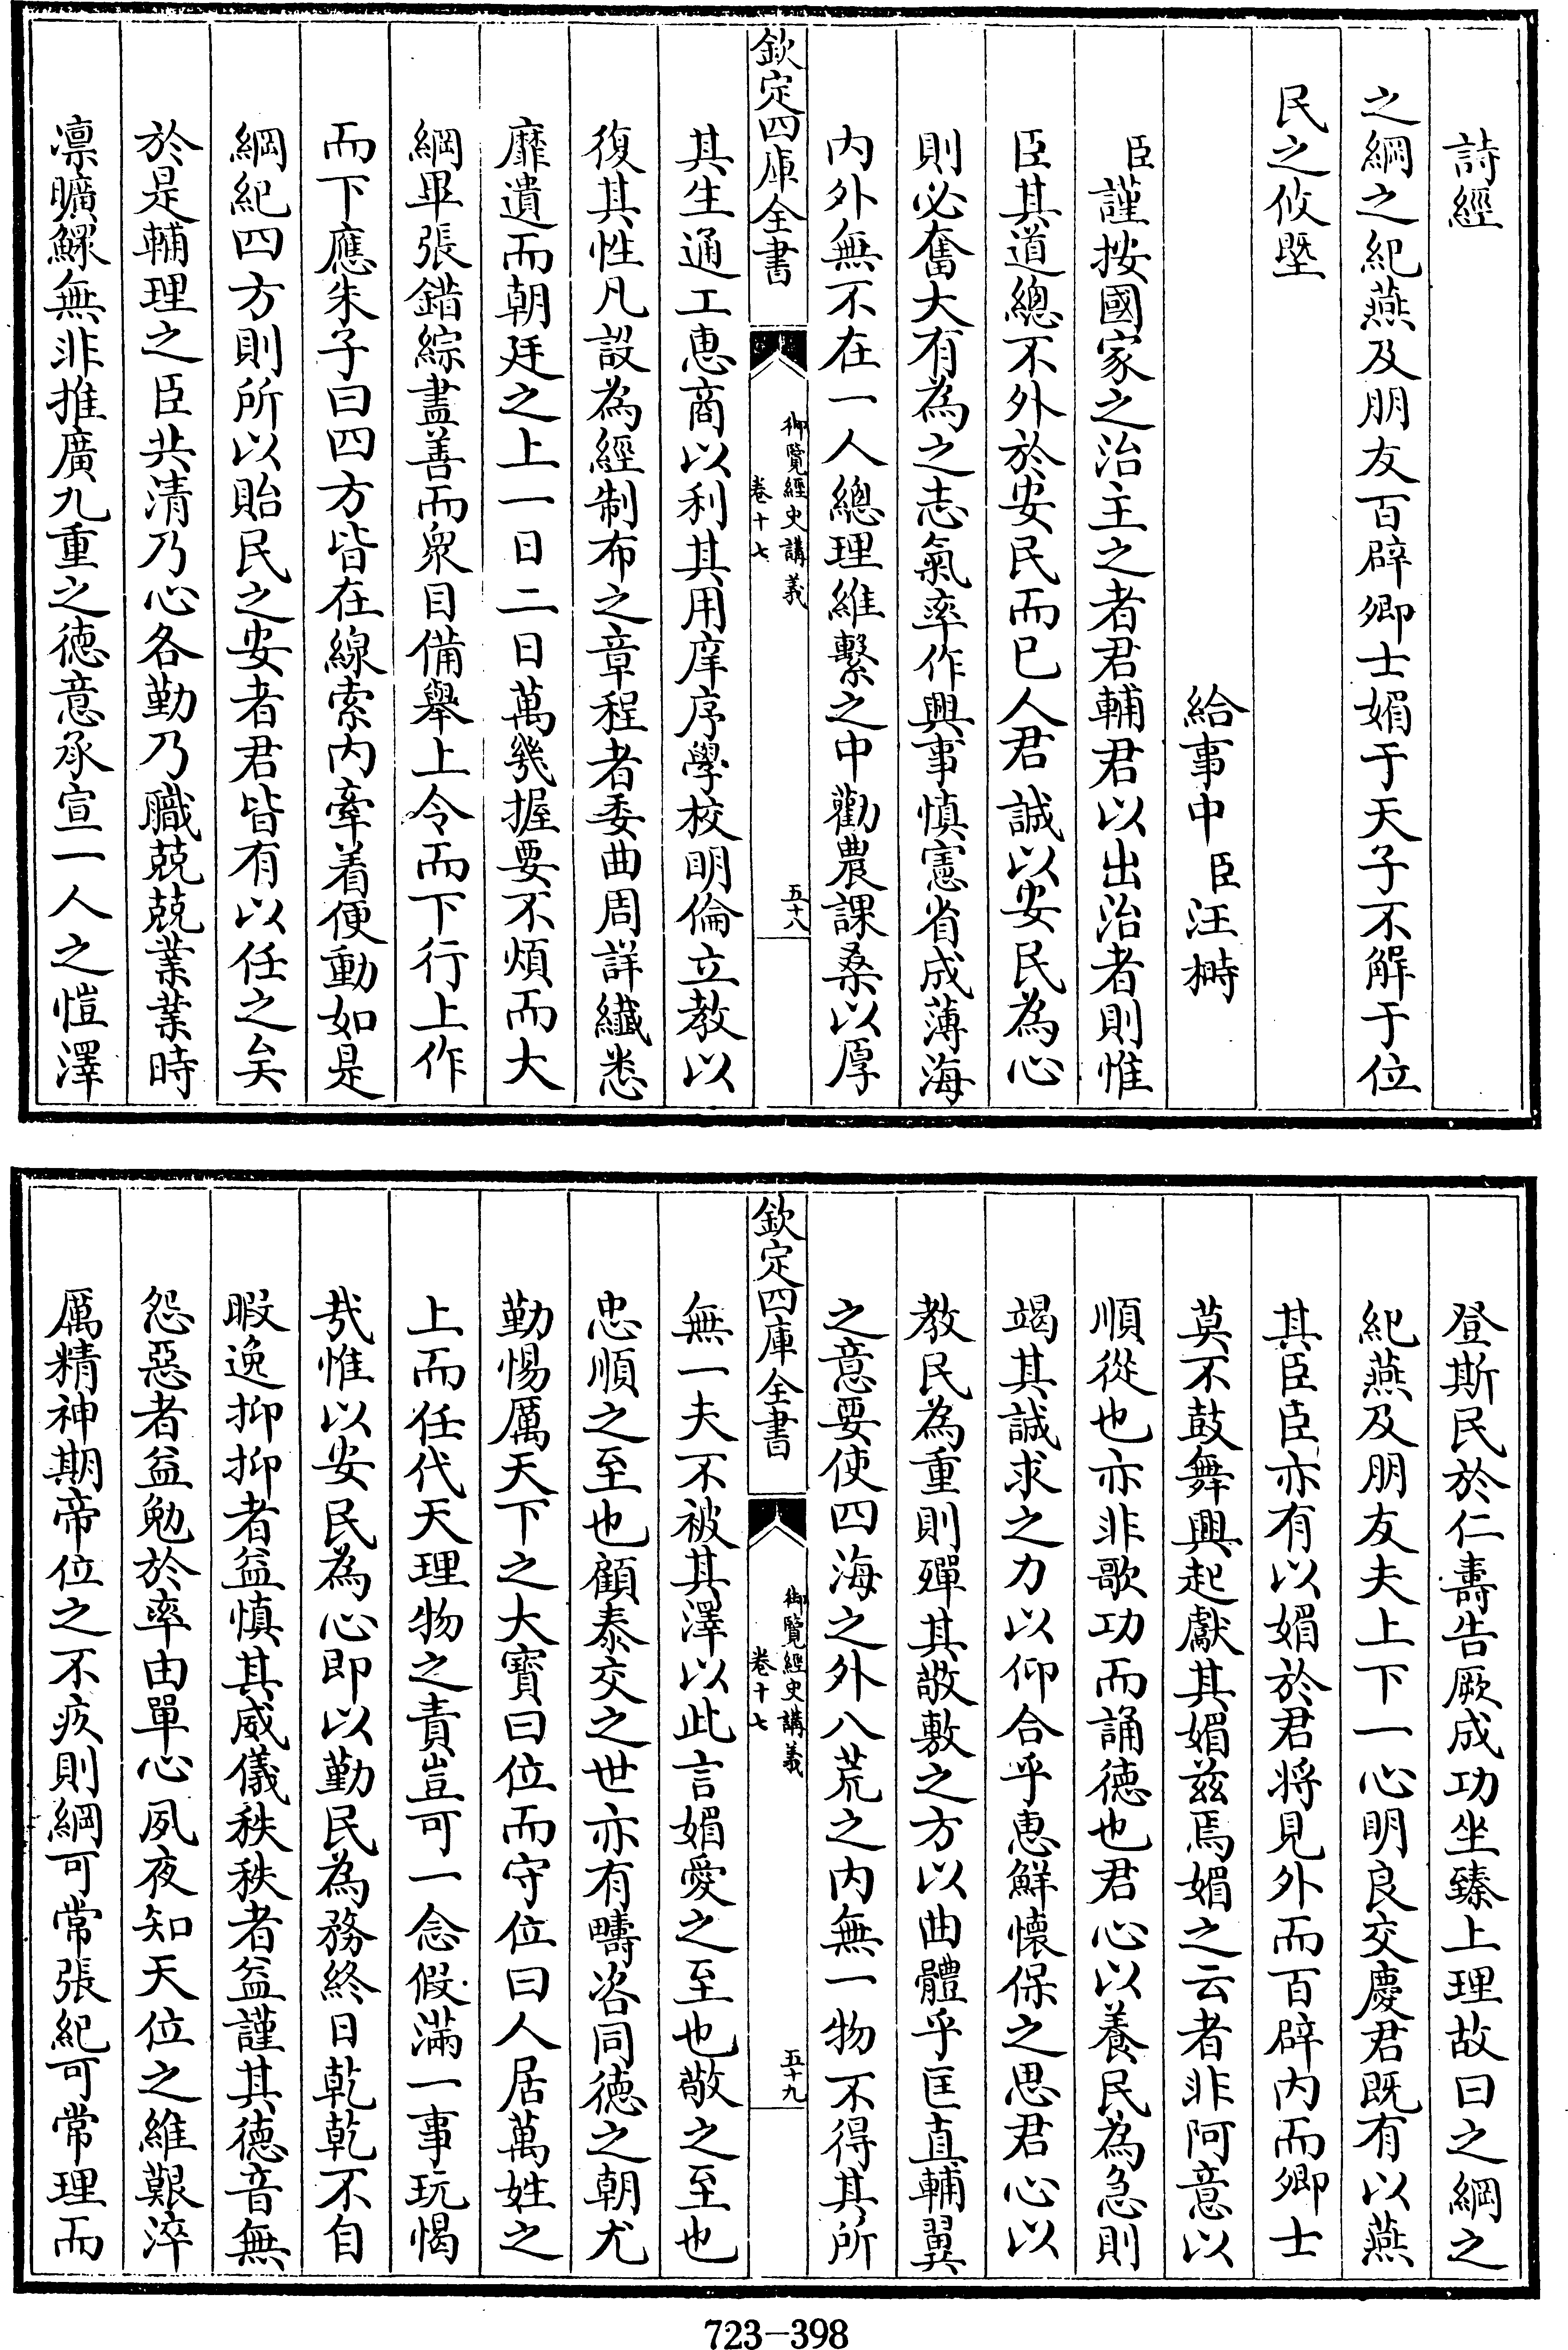 詩經
之綱之紀燕及朋友百辟卿士媚于天子不解于位
民之攸塈
給事中臣汪榯
臣謹按國家之治主之者君輔君以出治者則惟
臣其道總不外於安民而已人君誠以安民為心
則必奮大有為之志氣率作興事慎憲省成薄海
內外無不在一人總理維繫之中勸農課桑以厚
欽定四庫全書
御覽經史講義
卷十七
五十八
其生通工惠商以利其用庠序學校明倫立教以
復其性凡設為經制布之章程者委曲周詳纖悉
靡遺而朝廷之上一日二日萬幾握要不煩而大
綱畢張錯綜盡善而衆目備舉上令而下行上作
而下應朱子曰四方皆在線索內牽着便動如是
綱紀四方則所以貽民之安者君皆有以任之矣
於是輔理之臣共清乃心各勤乃職兢兢業業時
凛曠鰥無非推廣九重之德意承宣一人之愷澤
登斯民於仁壽告厥成功坐臻上理故曰之綱之
紀燕及朋友夫上下一心明良交慶君既有以燕
其臣臣亦有以媚於君將見外而百辟內而卿士
莫不鼓舞興起獻其媚茲焉媚之云者非阿意以
順從也亦非歌功而誦德也君心以養民為急則
竭其誠求之力以仰合乎惠鮮懷保之思君心以
教民為重則殫其敬敷之方以曲體乎匡直輔翼
之意要使四海之外八荒之內無一物不得其所
欽定四庫全書
御覽經史講義
卷十七
五十九
無一夫不被其澤以此言媚愛之至也敬之至也
忠順之至也顧泰交之世亦有疇咨同德之朝尤
勤惕厲天下之大寶曰位而守位曰人居萬姓之
上而任代天理物之責豈可一念假滿一事玩愒
哉惟以安民為心即以勤民為務終日乾乾不自
暇逸抑抑者益慎其威儀秩秩者益謹其德音無
怨惡者益勉於率由單心夙夜知天位之維艱淬
厲精神期帝位之不疚則綱可常張紀可常理而
723-398